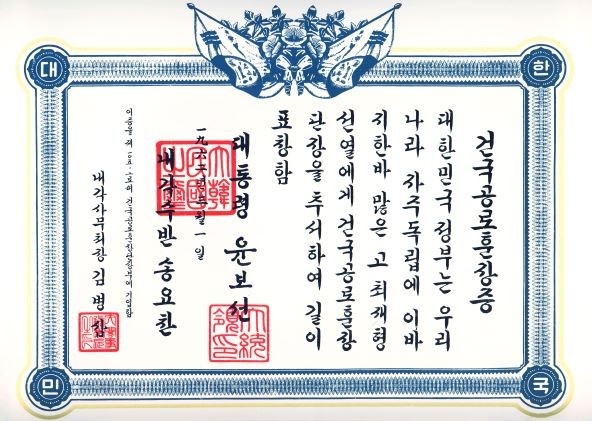 대한
민국
건국공로훈장증
대한민국 정부는 우리
나라 자주독립에 이바
지한바 많은 고 최재형
선열에게 건국공로훈장
단장을 추서하여 길이
표창함
대통령 윤보선
一九六二년三월一일
내각수반 송요찬
이증을 제 건국공로훈장부에 기입함
내각사무처장 김병삼
大韓民國之璽
大統領印